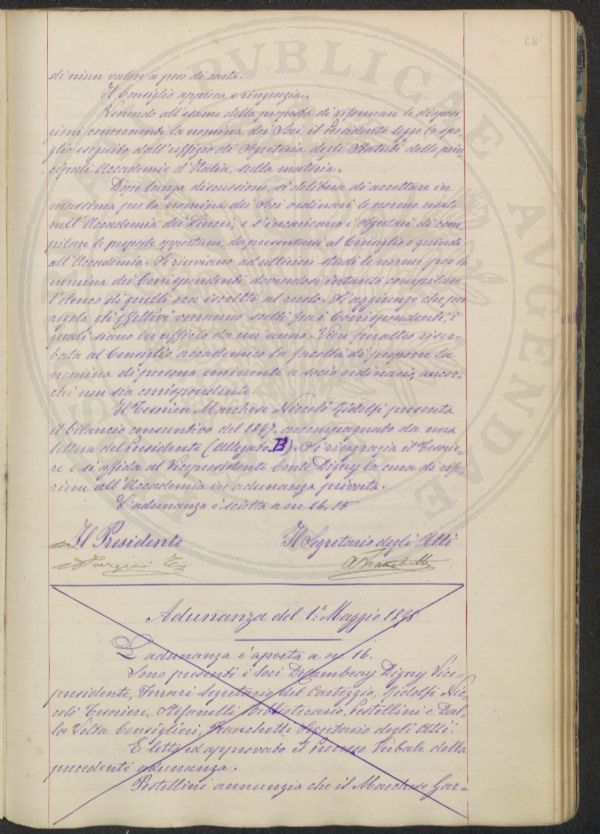 68
di niun valore a peso di carta.
Il Consiglio approva e ringrazia.
Venendo all'esame della proposta di riformare le disposi=
zioni concernenti la nomina dei Soci il Presidente legge lo spo=
glio eseguito dall'uffizio di Segreteria degli Statuti delle prin=
cipali Accademie d'Italia, sulla materia.
Dopo lunga discussione, si delibera di accettare in
massima per la nomina dei Soci ordinari le norme usate
nell'Accademia dei Lincei, e s'incaricano i Segretari di com=
pilare le proposte opportune, da presentarsi al Consiglio e quindi
all'Accademia. Si rinviano ad ulteriori studi le norme per la
nomina dei Corrispondenti dovendosi intanto compilare
l'elenco di quelli ora iscritti al ruolo. Si aggiunge che per
regola gli effettivi verranno scelti fra i Corrispondenti i
quali siano in ufficio da un anno. Vien peraltro riser=
bata al Consiglio accademico la facoltà di proporre la
nomina di persona eminente a socio ordinario, ancor=
chè non sia corrispondente.
Il Tesoriere Marchese Niccolò Ridolfi presenta
il bilancio consuntivo del 1897, accompagnato da una
lettera del Presidente (Allegato B). Si ringrazia il Tesorie=
re e si affida al Vicepresidente Conte Digny la cura di rife=
rirne all'Accademia in adunanza privata.
L'adunanza è sciolta a ore 16.15
Il Presidente Il Segretario degli Atti
A. Franchetti
Adunanza del 1.° Maggio 1898
L'adunanza è aperta a ore 16.
Sono presenti i Soci De Cambray Digny Vice=
presidente, Ferrari Segretario del Carteggio, Ridolfi Nic=
colò Tesoriere, Stefanelli Bibliotecario, Pestellini e Dal=
la Volta Consiglieri, Franchetti Segretario degli Atti.
È letto ed approvato il Processo Verbale della
precedente adunanza.
Pestellini annunzia che il Marchese Gar=